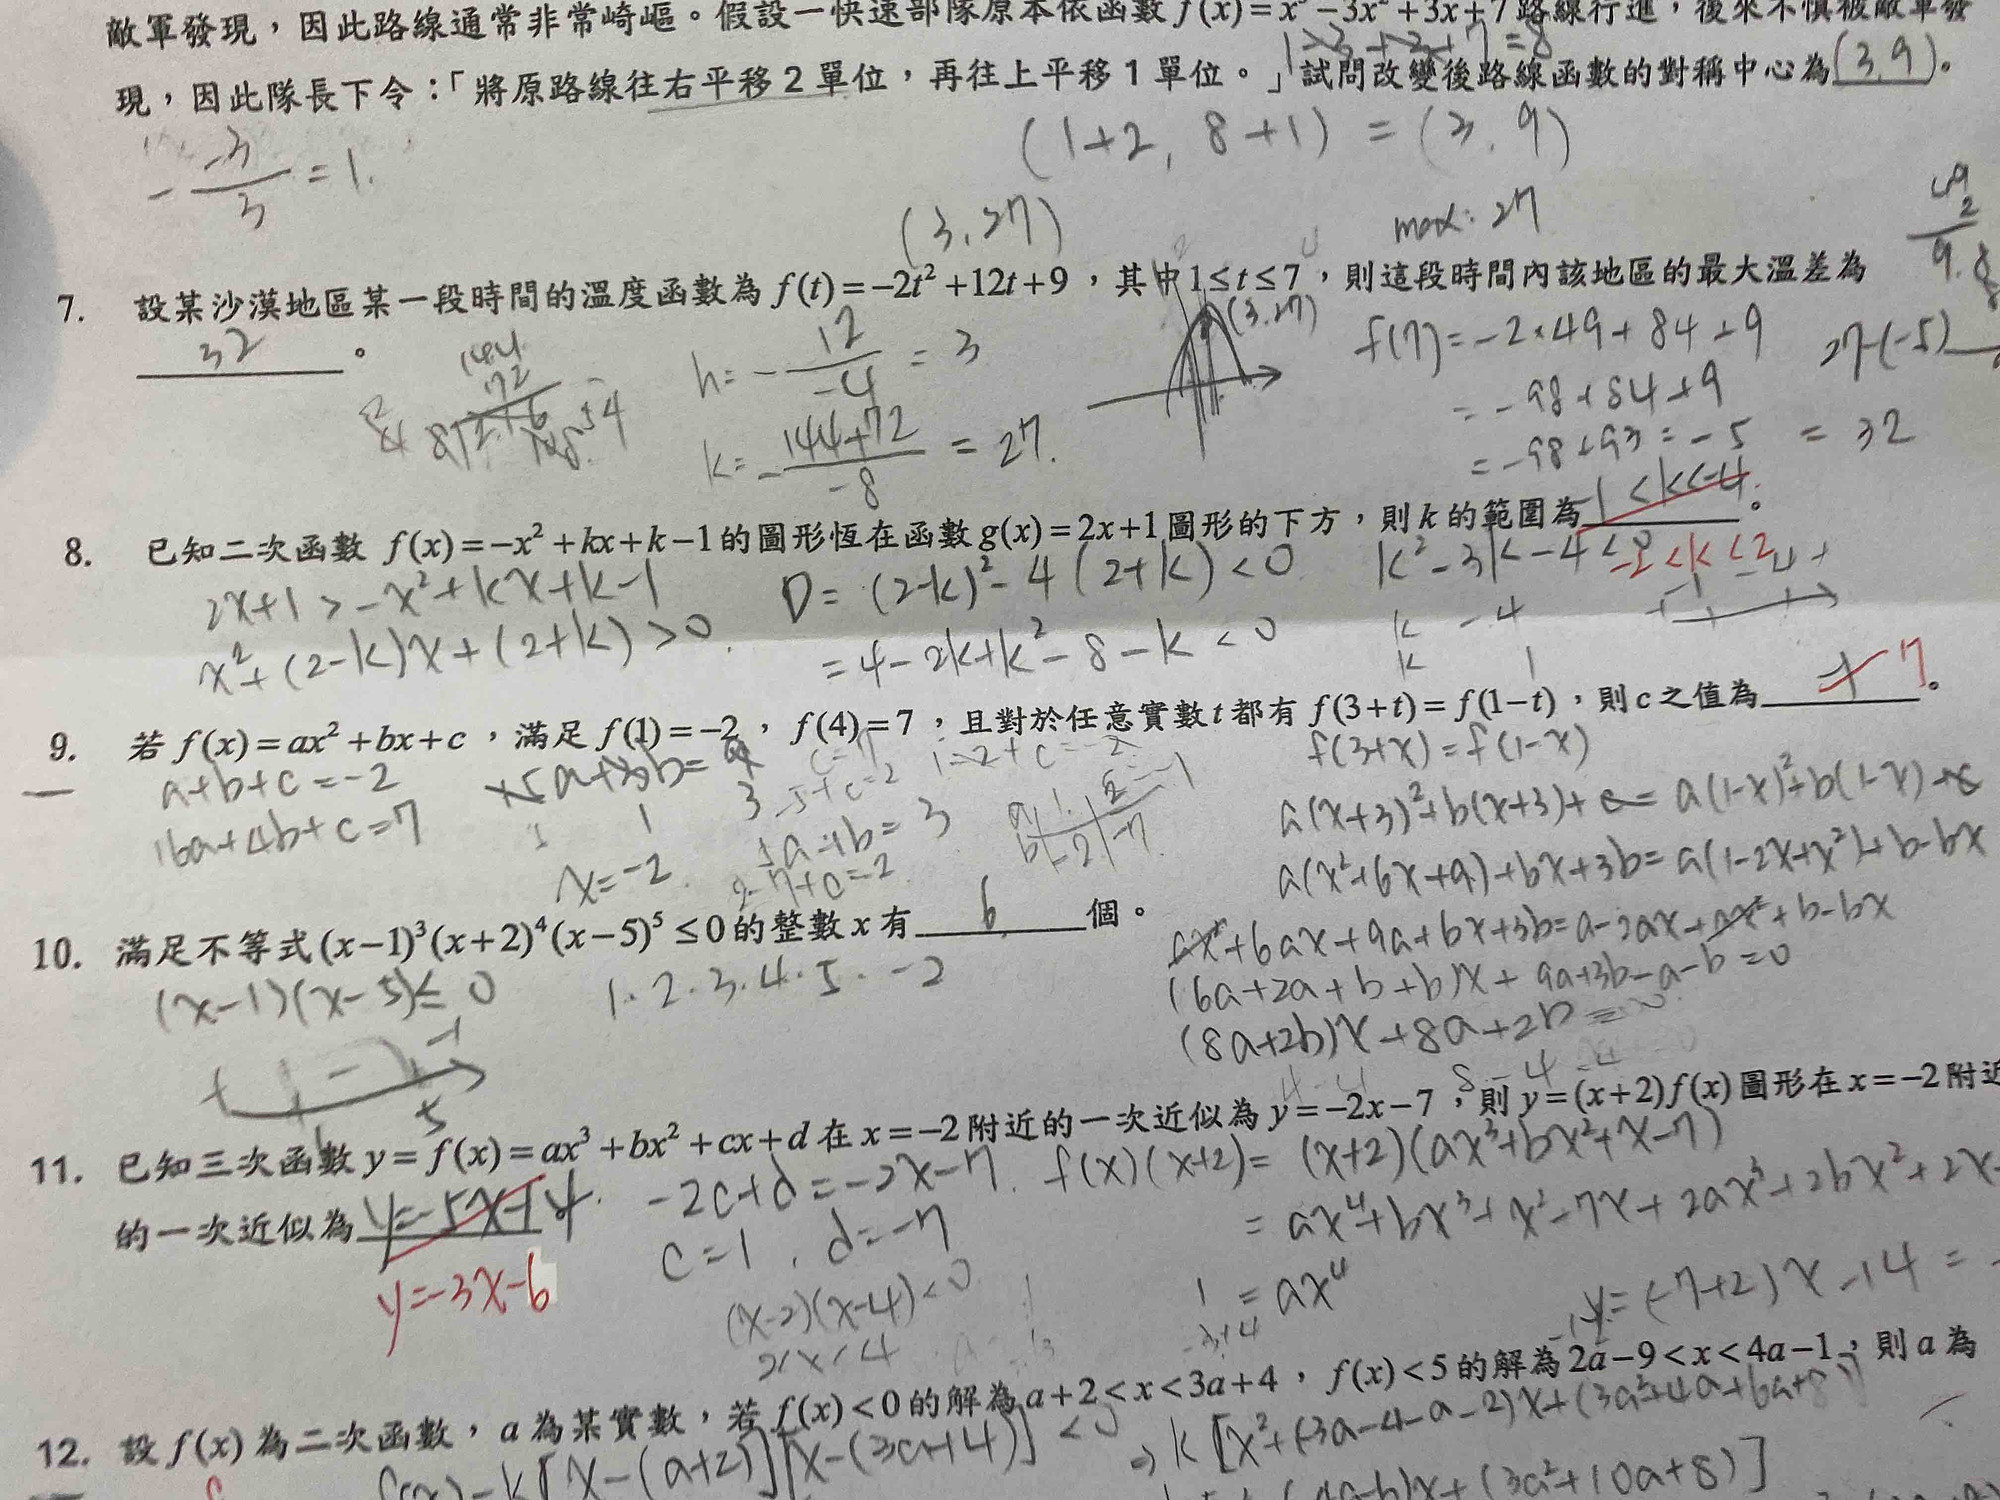 敵軍發現，因此路線通常非常崎嶇。假設一快速部隊原本依函數 f(x)=x³−3x²+3x+7 路線行進，後來不慎被敵軍發
1−3+3+7=8
現，因此隊長下令：「將原路線往右平移 2 單位，再往上平移 1 單位。」試問改變後路線函數的對稱中心為 (3,9)。
− −3/3 = 1.
(1+2, 8+1) = (3, 9)
(3, 27)
max: 27
7. 設某沙漠地區某一段時間的溫度函數為 f(t)=−2t²+12t+9，其中 1≤t≤7，則這段時間內該地區的最大溫差為
32。
h = − 12/−4 = 3
(3, 27)
f(7)=−2·49+84+9
27−(−5)
= −98+84+9
k = − 144+72/−8 = 27.
= −98+93 = −5
= 32
8. 已知二次函數 f(x)=−x²+kx+k−1 的圖形恆在函數 g(x)=2x+1 圖形的下方，則 k 的範圍為 −1<k<4。
−2<k<2
2x+1 > −x²+kx+k−1
D = (2−k)²−4(2+k)<0
k²−3k−4<0
x²+(2−k)x+(2+k)>0
= 4−2k+k²−8−k<0
k −4
k 1
9. 若 f(x)=ax²+bx+c，滿足 f(1)=−2，f(4)=7，且對於任意實數 t 都有 f(3+t)=f(1−t)，則 c 之值為 7。
a+b+c=−2
16a+4b+c=7
x=−2
f(3+x)=f(1−x)
a(x+3)²+b(x+3)+c=a(1−x)²+b(1−x)+c
a(x²+6x+9)+bx+3b=a(1−2x+x²)+b−bx
ax²+6ax+9a+bx+3b=a−2ax+ax²+b−bx
(6a+2a+b+b)x+9a+3b−a−b=0
(8a+2b)x+8a+2b=0
10. 滿足不等式 (x−1)³(x+2)⁴(x−5)⁵≤0 的整數 x 有 6 個。
(x−1)(x−5)≤0
1.2.3.4.5.−2
11. 已知三次函數 y=f(x)=ax³+bx²+cx+d 在 x=−2 附近的一次近似為 y=−2x−7，則 y=(x+2)f(x) 圖形在 x=−2 附近
的一次近似為 y=−5x−14.
y=−3x−6
−2c+d=−2x−7.
c=1, d=−7
(x−2)(x−4)<0
2<x<4
f(x)(x+2)=(x+2)(ax³+bx²+x−7)
=ax⁴+bx³+x²−7x+2ax³+2bx²+2x
=ax⁴
y=(−7+2)x−14=
12. 設 f(x) 為二次函數，a 為某實數，若 f(x)<0 的解為 a+2<x<3a+4，f(x)<5 的解為 2a−9<x<4a−1，則 a 為
f(x)=k[x−(a+2)][x−(3a+4)]<0
⇒k[x²+(−3a−4−a−2)x+(3a²+4a+6a+8)]